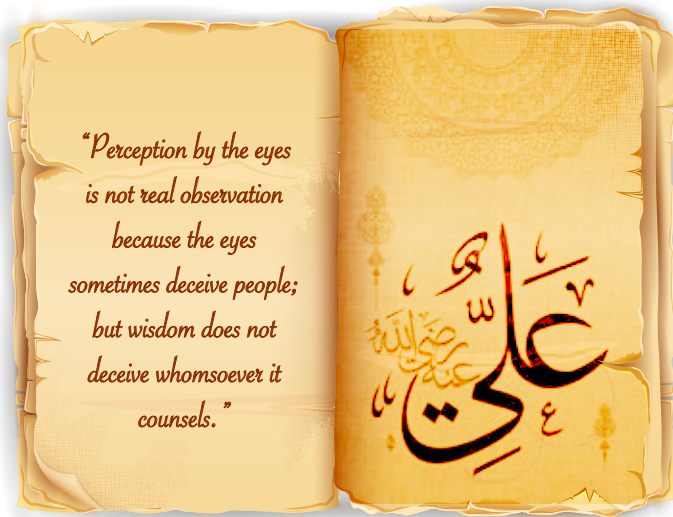 “Perception by the eyes
is not real observation
because the eyes
sometimes deceive people;
but wisdom does not
deceive whomsoever it
counsels.”
عَلِيٌّ
رضي الله عنه